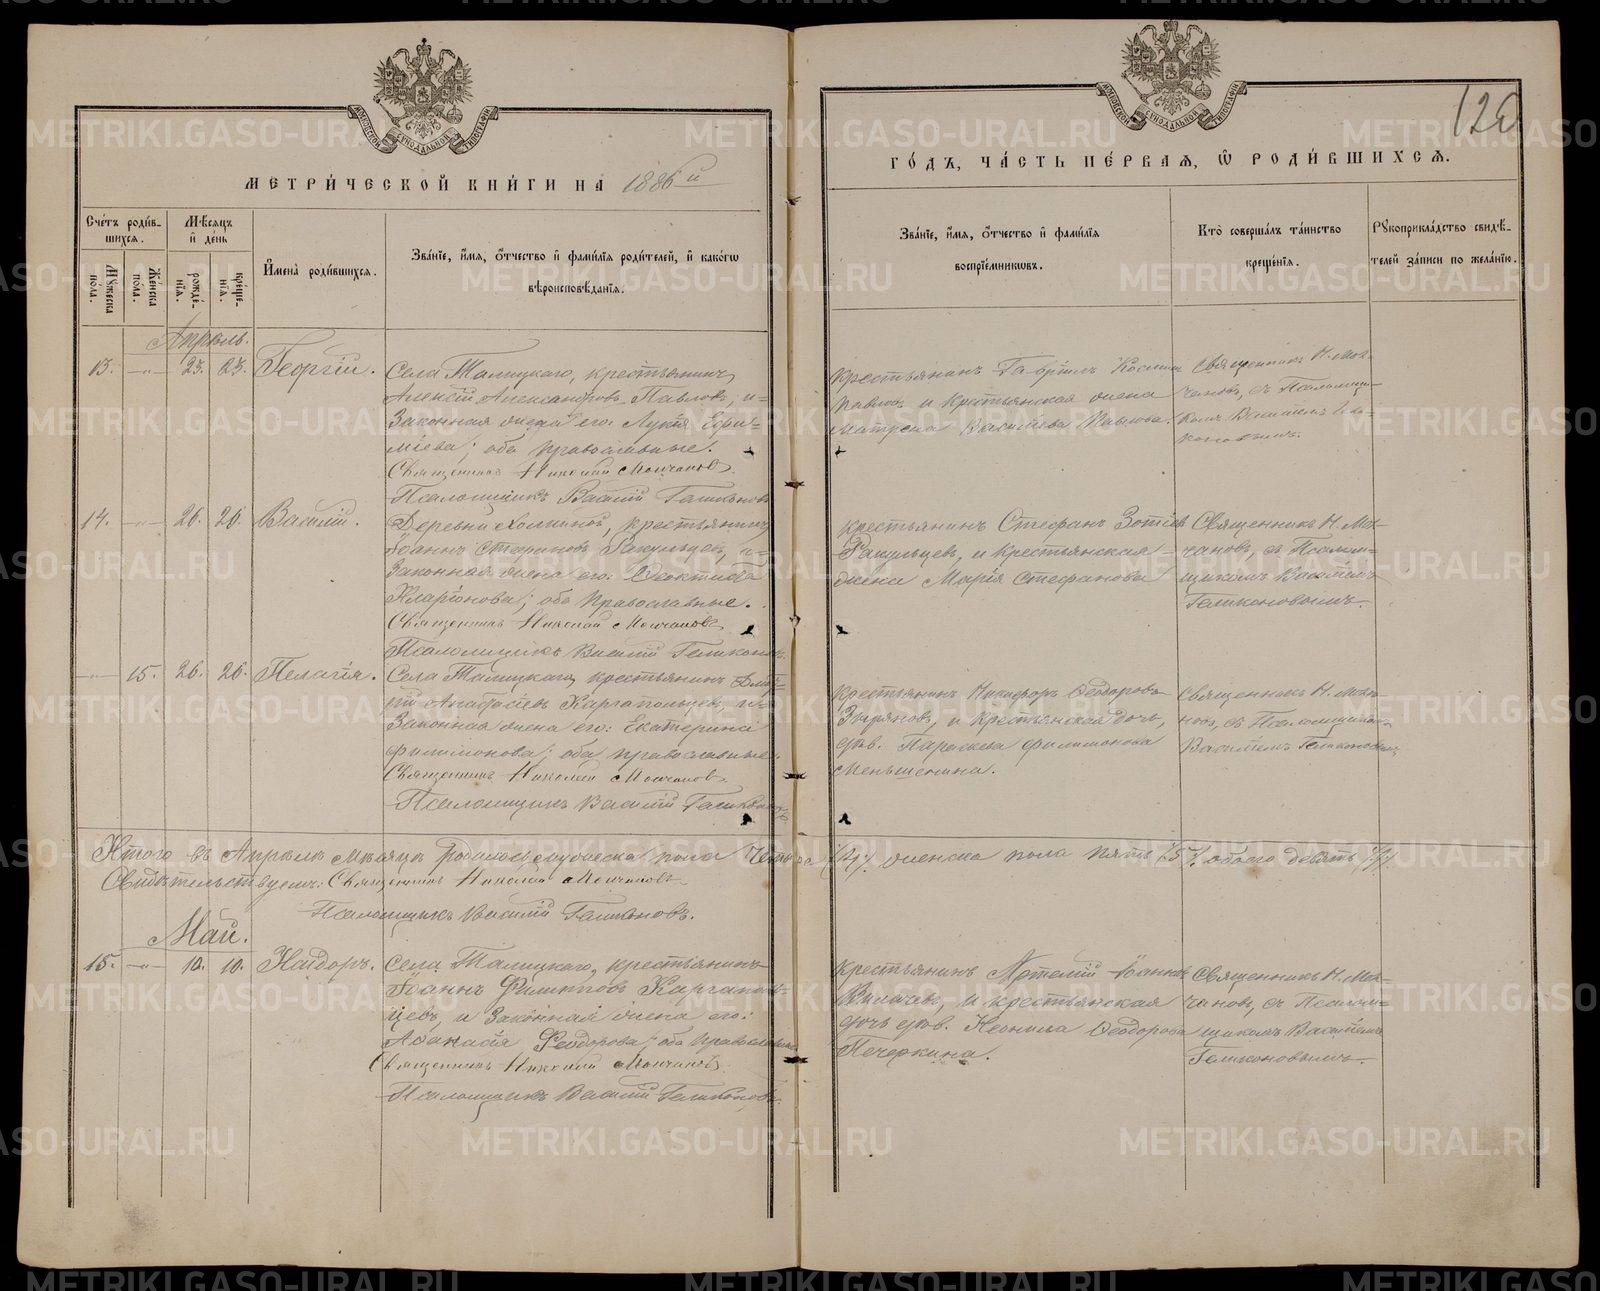 МЕТРИ́ЧЕСКОЙ КНИ́ГИ НА 1886й
Сче́тъ роди́в-
шихся.
Му́жеска
пола.
Же́нска
пола.
Мѣ́сяцъ
и҆ де́нь
рожде́-
нїя.
креще́-
нїя.
И҆мена̀ роди́вшихся.
Зва́нїе, и҆́мя, ѻ҆́тчество и҆ фами́лїя роди́телей, и҆ како́гѡ
вѣроисповѣ́данїя.
Апрѣль.
13. —"— 23. 23. Георгій.
Села Талицкаго, крестьянинъ
Алексій Александровъ Павловъ, и
законная жена его: Лукія Ефи-
міева; оба православные.
Священникъ Николай Молчановъ
Псаломщикъ Василій
14. —"— 26. 26. Василій.
Деревни крестьянинъ
Іоаннъ Стефановъ Ракульцевъ, и
законная жена его:
Иларіонова; оба православные.
Священникъ Николай Молчановъ
Псаломщикъ Василій
—"— 15. 26. 26. Пелагія.
Села Талицкаго, крестьянинъ Дмит-
рій Каргапольцевъ, и
законная жена его: Екатерина
Филимонова; оба православные.
Священникъ Николай Молчановъ.
Псаломщикъ Василій
Итого въ Апрѣлѣ мѣсяцѣ родилось мужеска пола четыре (4), женска пола пять (5), обоего девять (9).
Свидѣтельствуемъ: Священникъ Николай Молчановъ
Псаломщикъ Василій
Май.
15. —"— 10. 10. Исидоръ.
Села Талицкаго, крестьянинъ
Іоаннъ Филипповъ Каргаполь-
цевъ, и законная жена его:
Аѳанасія Ѳеодорова; оба православные
Священникъ Николай Молчановъ.
Псаломщикъ Василій
120
ГО́ДЪ, ЧА́СТЬ ПЕ́РВАЯ, Ѡ҆ РОДИ́ВШИХСЯ.
Зва́нїе, и҆́мя, ѻ҆́тчество и҆ фами́лїя
воспрїе́мникωвъ.
Кто̀ соверша́лъ та́инство
креще́нїя.
Рꙋкоприкла́дство свидѣ́-
телей за́писи по жела́нїю.
Крестьянинъ Гаврілъ Косминъ
Павловъ и крестьянская жена
Матрона Василіева Павлова.
Священникъ Н. Мол-
чановъ, съ Псаломщи-
комъ Василіемъ
Крестьянинъ Стефанъ Зотіевъ
Ракульцевъ, и крестьянская
жена Марія Стефанова
Священникъ Н. Мол-
чановъ, съ Псалом-
щикомъ Василіемъ
Крестьянинъ Никифоръ Ѳеодоровъ
Зыряновъ, и крестьянская дочь,
дѣв. Параскева Филимонова
Меньшенина.
Священникъ Н. Молча-
новъ, съ Псаломщикомъ
Василіемъ
Крестьянинъ Іоанновъ
и крестьянская
дочь дѣв. Неонила Ѳеодорова
Печеркина.
Священникъ Н. Мол-
чановъ, съ Псалом-
щикомъ Василіемъ
METRIKI.GASO-URAL.RU